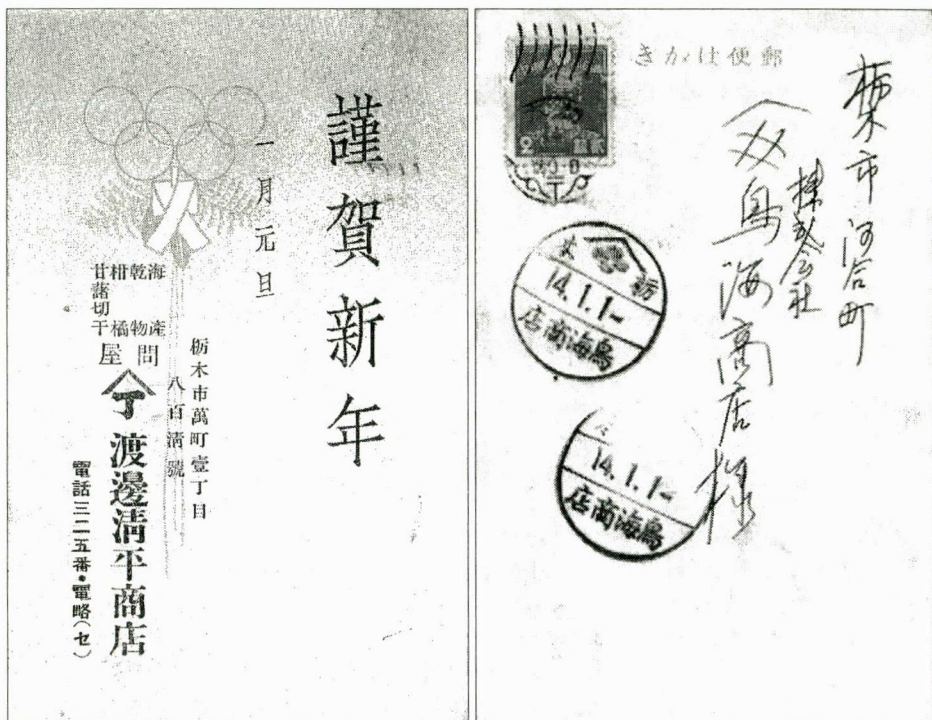 謹賀新年
一月元旦
栃木市萬町壹丁目
八百淸號
海産
乾物
柑橘
甘藷切干
問屋
渡邊淸平商店
電話三二五番・電略(セ)
郵便はがき
栃木市河合町
株式会社
鳥海商店様
栃
14.1.1-
鳥海商店
14.1.1-
鳥海商店
2